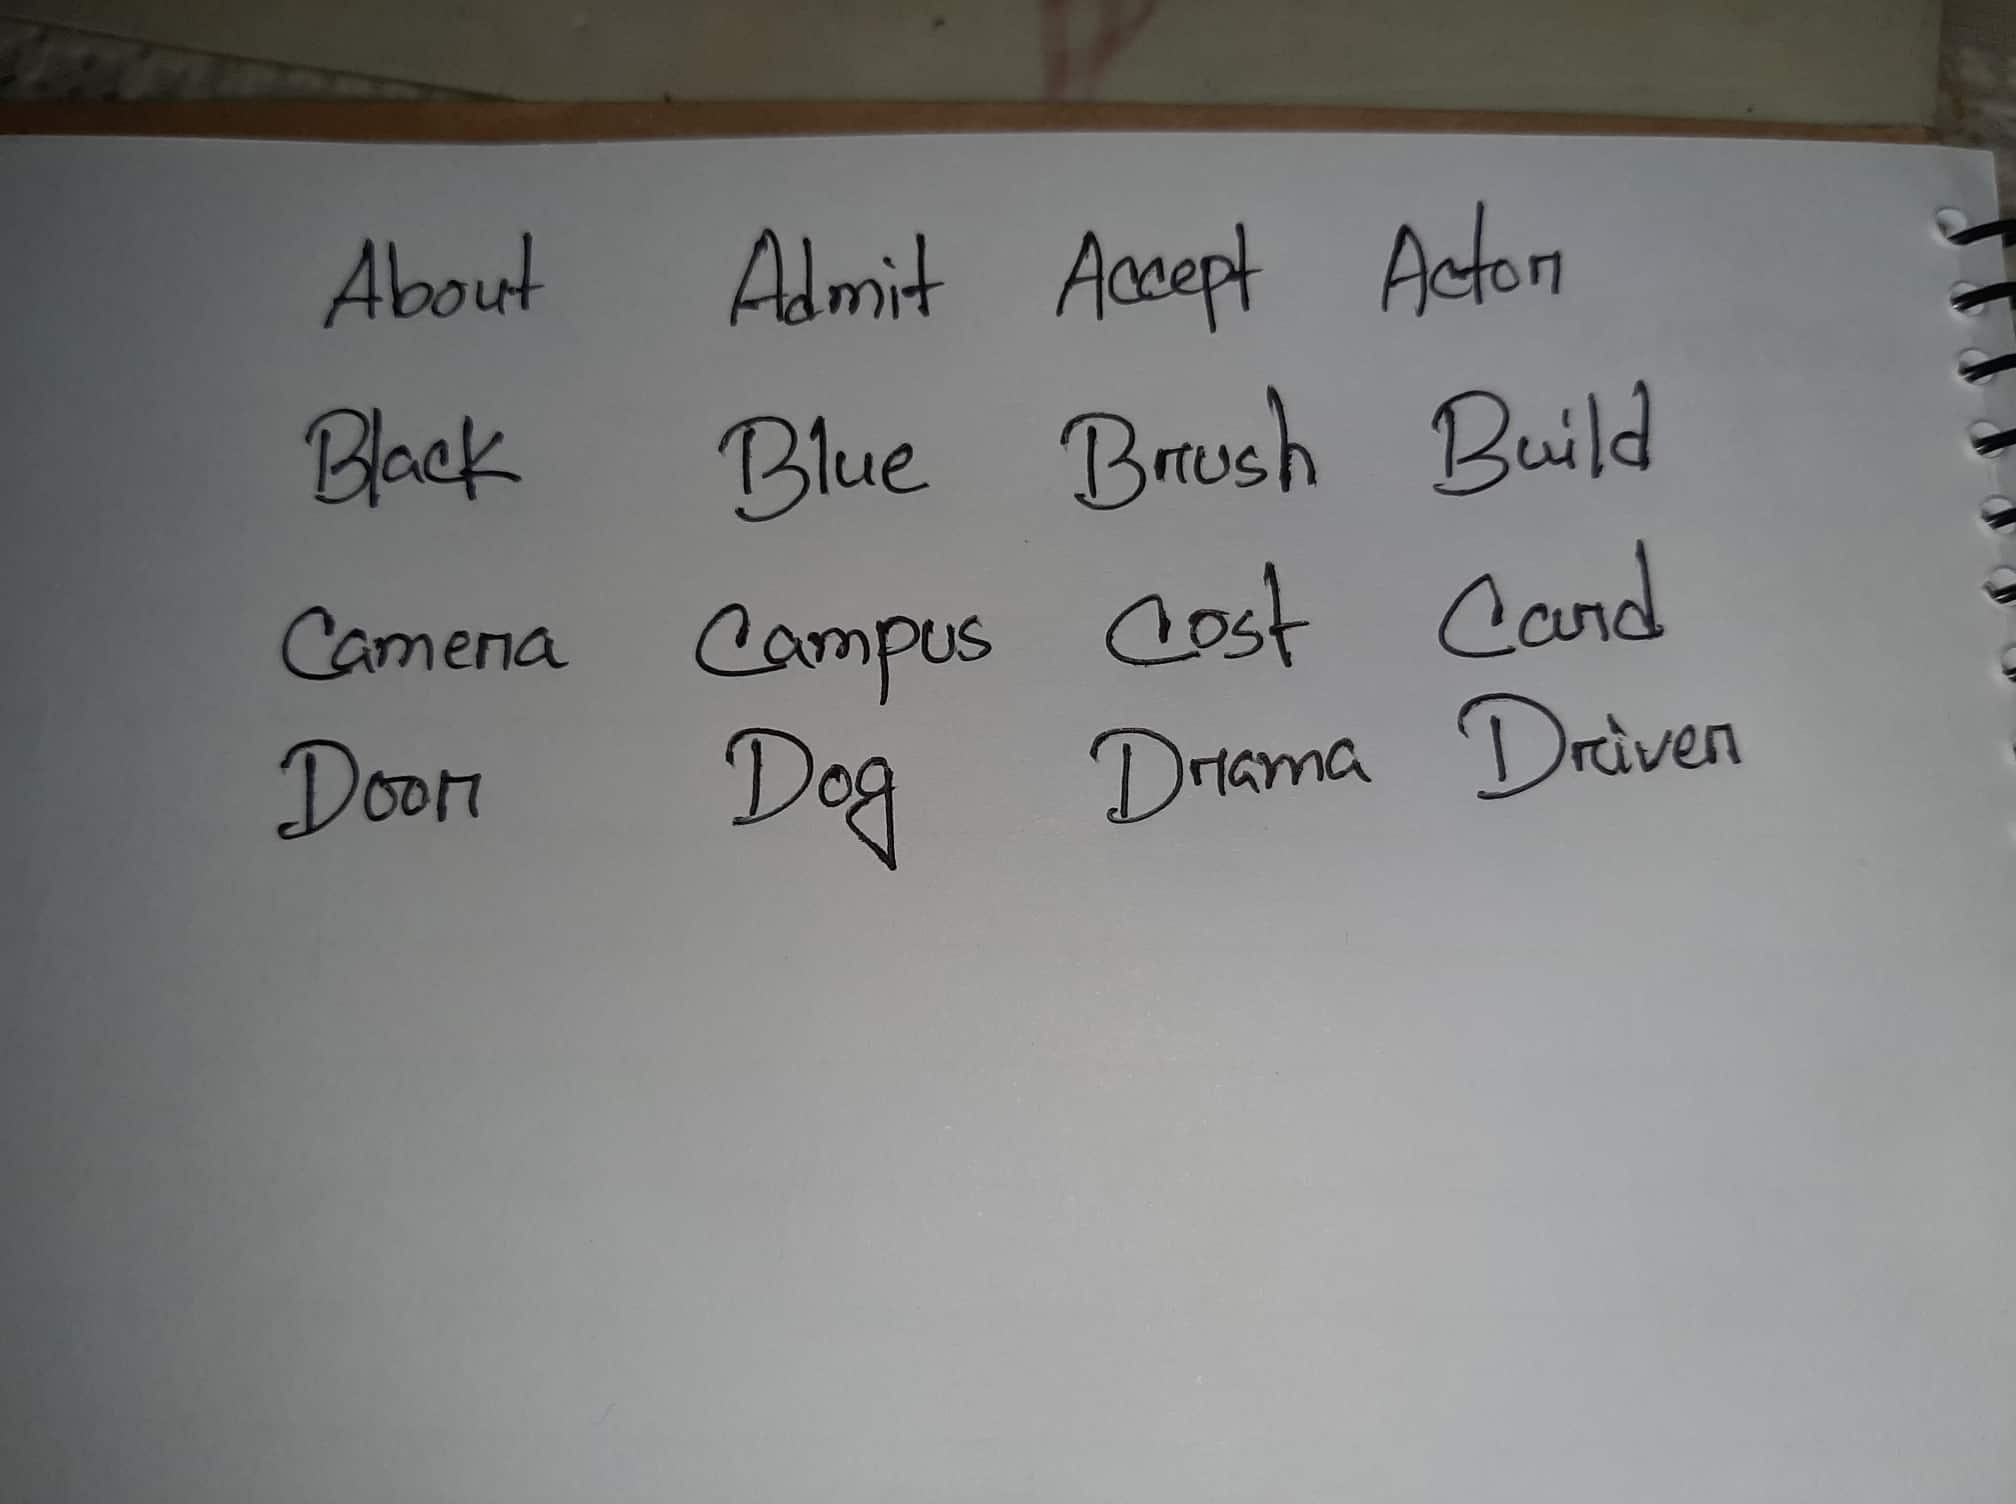 About Admit Accept Actor
Black Blue Brush Build
Camera Campus Cost Card
Door Dog Drama Driver